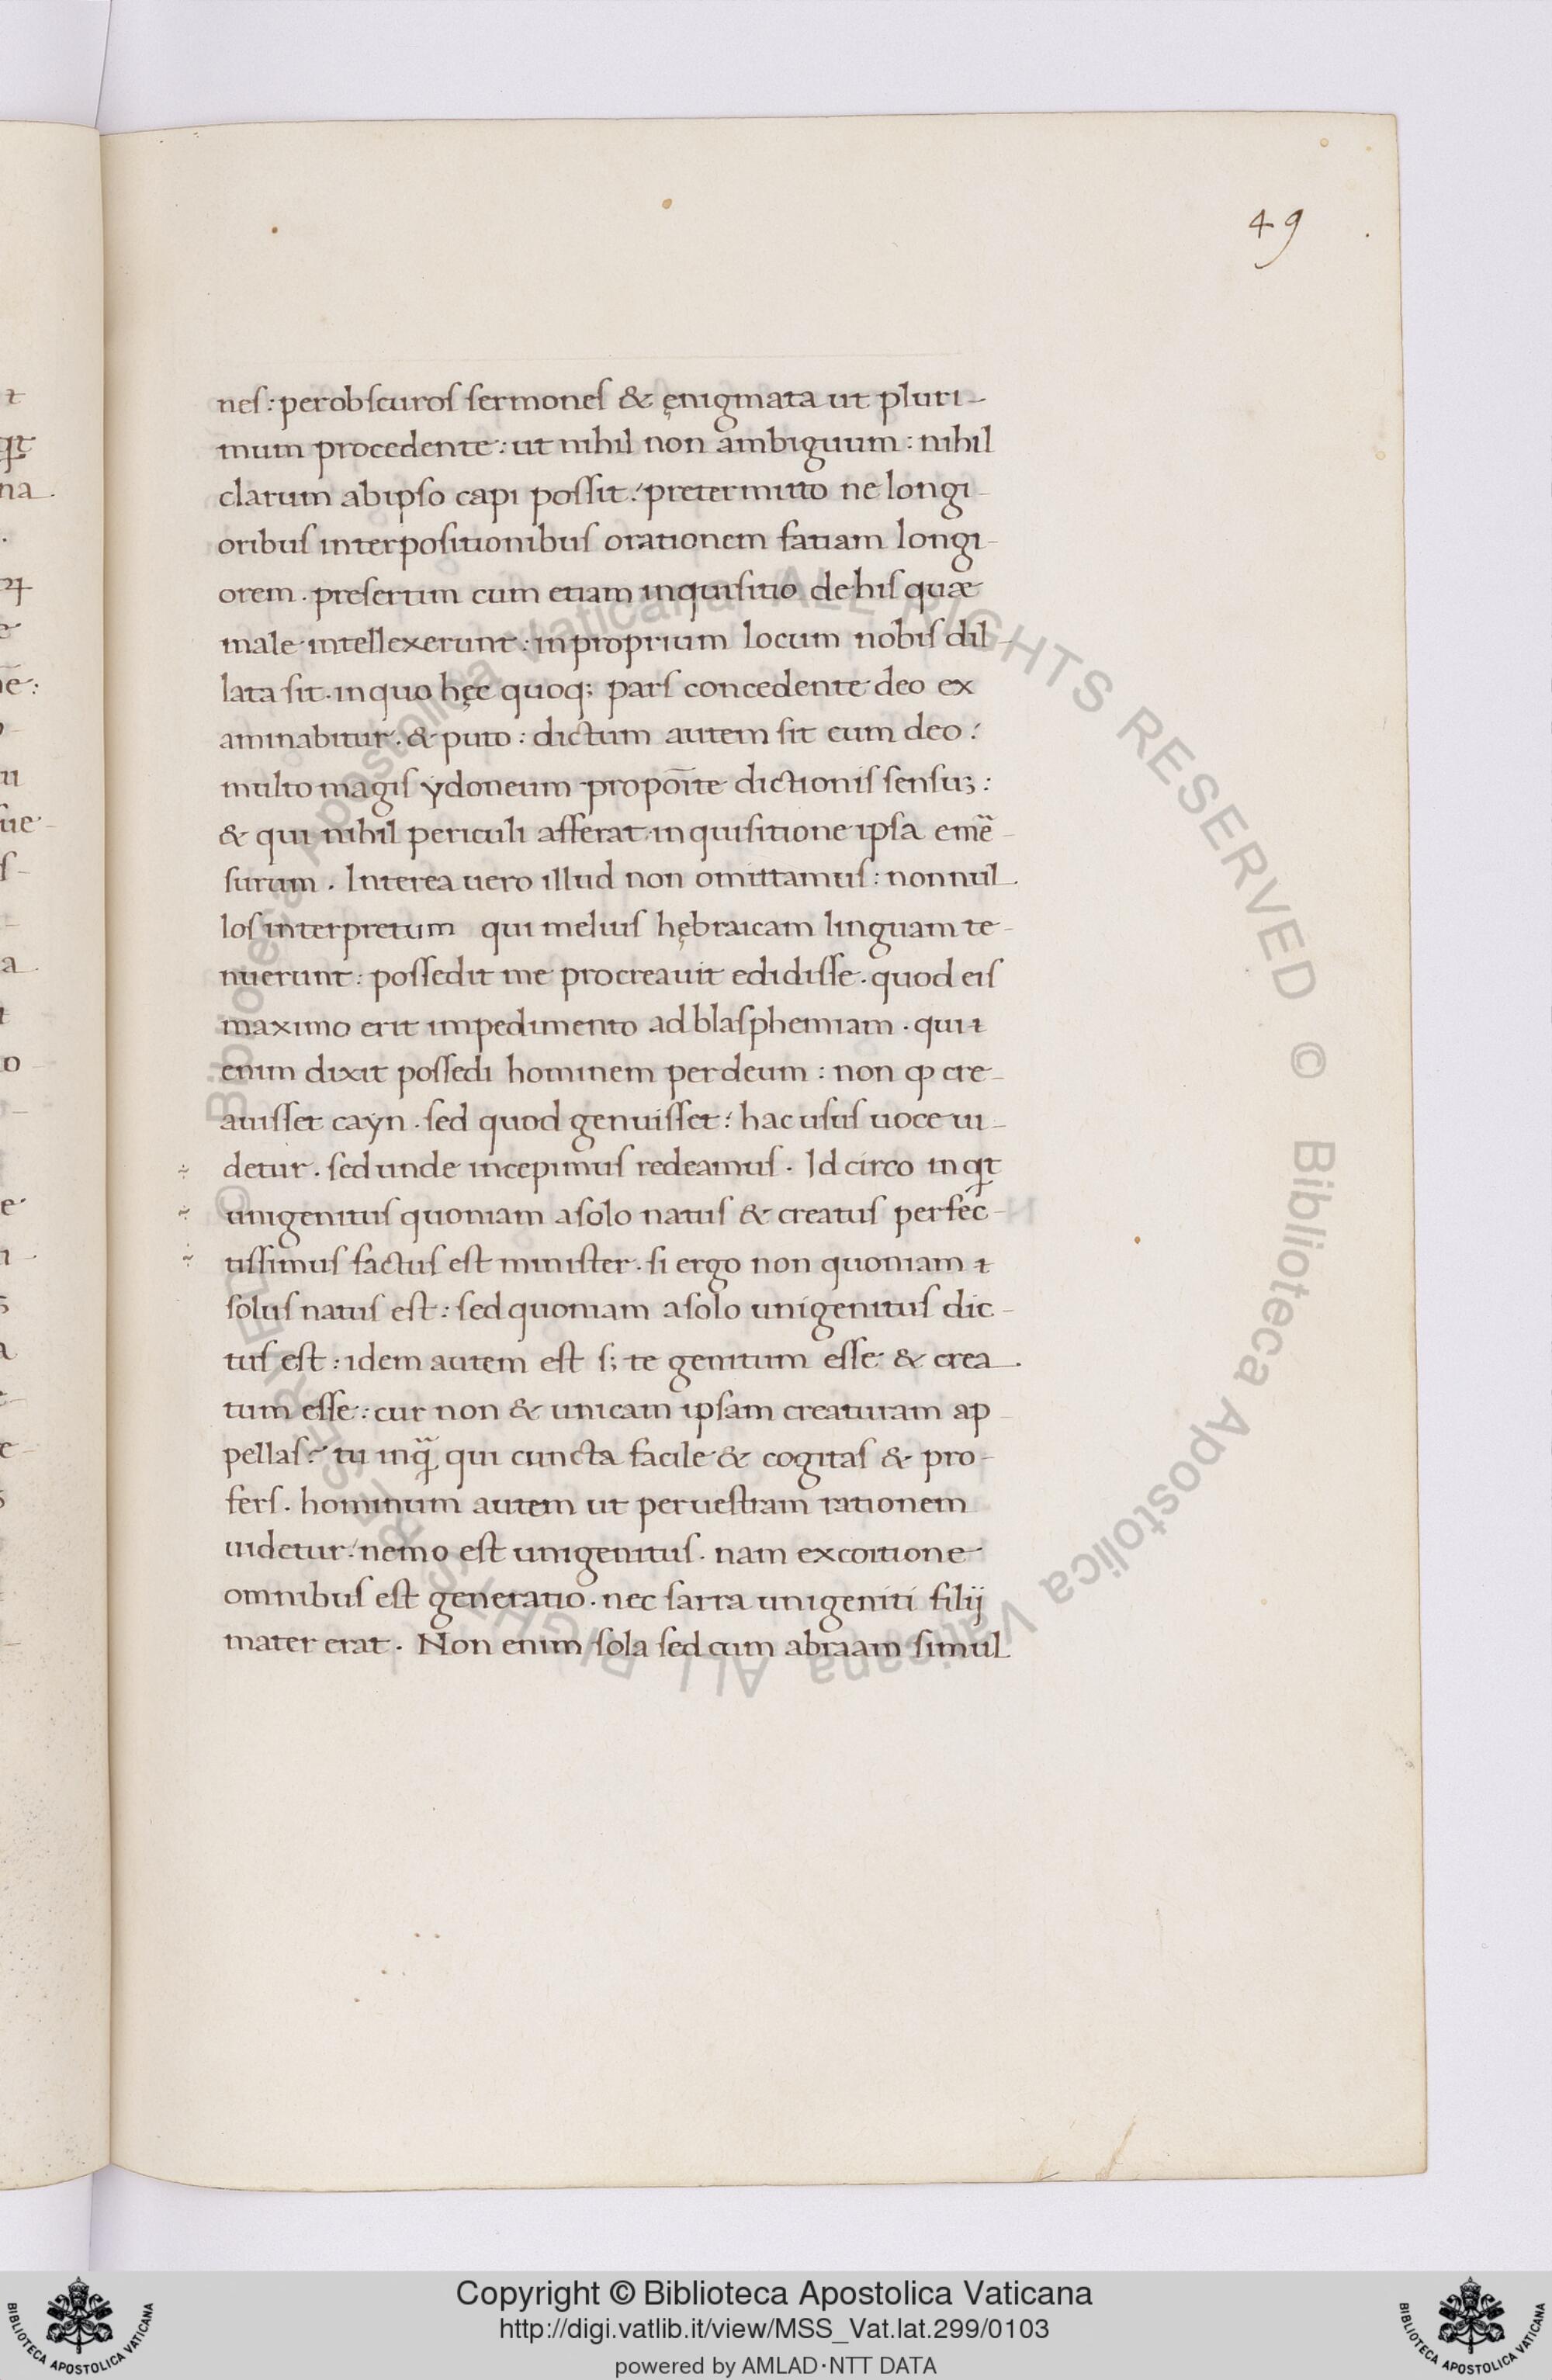 49
nes: per obscuros sermones & ęnigmata ut pluri-
mum procedente: ut nihil non ambiguum: nihil
clarum ab ipso capi possit: pretermitto ne longi-
oribus interpositionibus orationem fatiam longi-
orem. presertim cum etiam inquisitio de his quæ
male intellexerunt: in proprium locum nobis dil-
lata sit. in quo hęc quoq; pars concedente deo ex
aminabitur. & puto: dictum autem sit cum deo:
multo magis ydoneum propoīte dictionis sensuȝ:
& qui nihil periculi afferat inquisitione ipsa emē-
surum. Interea uero illud non omittamus: nonnul-
los interpretum qui melius hębraicam linguam te-
nuerunt: possedit me procreauit edidisse. quod eis
maximo erit impedimento ad blasphemiam. qui
enim dixit possedi hominem per deum: non ꝙ cre-
auisset cayn. sed quod genuisset: hac usus uoce ui-
detur. sed unde incepimus redeamus. Idcirco inqt
unigenitus quoniam a solo natus & creatus perfec-
tissimus factus est minister. si ergo non quoniam
solus natus est: sed quoniam a solo unigenitus dic-
tus est: idem autem est s; te genitum esse & crea-
tum esse: cur non & unicam ipsam creaturam ap-
pellas? tu inq̄ qui cuncta facile & cogitas & pro-
fers. hominum autem ut per uestram rationem
uidetur: nemo est unigenitus. nam ex coitione
omnibus est generatio. nec sarra unigeniti filij
mater erat. Non enim sola sed cum abraam simul
Copyright © Biblioteca Apostolica Vaticana
http://digi.vatlib.it/view/MSS_Vat.lat.299/0103
powered by AMLAD·NTT DATA
BIBLIOTECA APOSTOLICA VATICANA
BIBLIOTECA APOSTOLICA VATICANA